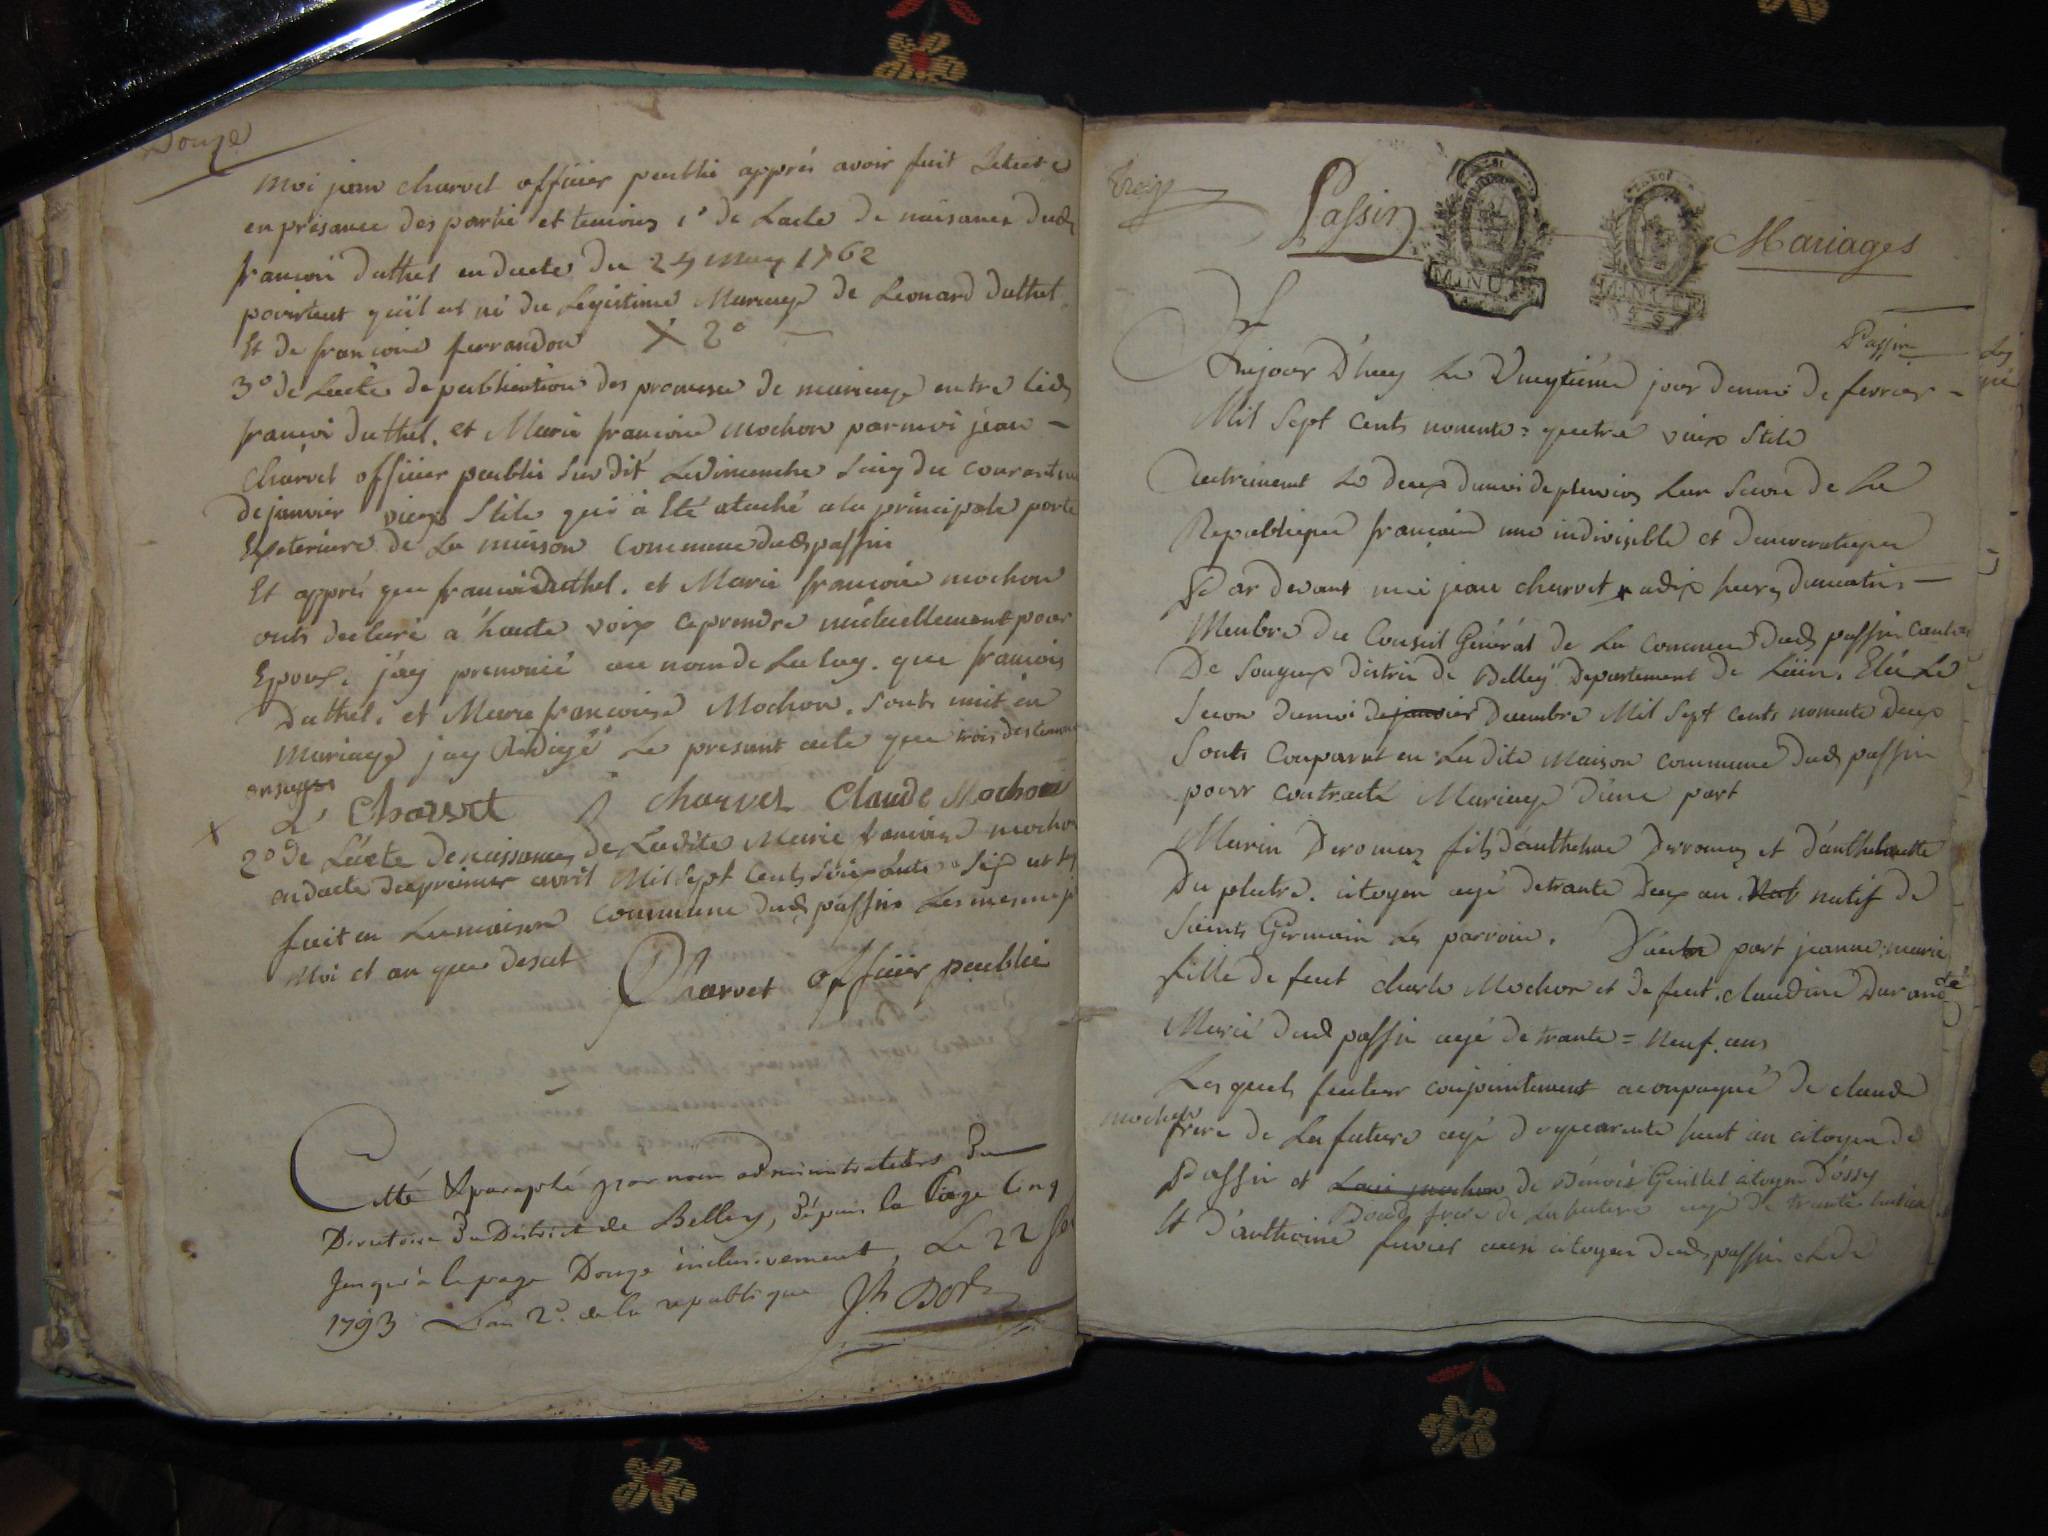 Douze
moi jean charvet officier publié apprés avoir fait Lecture
en présance des partie et temoins 1° de Lacte de naisance dud
francoi duthel en datte du 24 may 1762
pourtent qu'il est né du Legistime Mariage de Leonard duthel
Et de francoise ferrandon X 2°
3° de Lacte de publication des promesse de mariage entre led
francoi duthel. et Marie francoise mochon par moi jean
charvet officier publié sus dit Le dimanche cinq du courant
de janvier vieux Stile qui à Eté ataché a la principale porte
Exeterieure de La maison commune dud passin
Et apprés que francois Duthel. et Marie francoise mochon
onts declaré a haute voix ce prendre mutuellement pour
Epoux. j'ay prenoncé au nom de La loy. que francois
duthel. et Marie francoise Mochon. sonts unit en
mariage jay Redigé Le presant acte que trois des temoins
onsignés
Charvet charvet Claude Mochon
X 2° De Lacte de naissance de Ladite Marie francoise mochon
en datte du premier avril Mil Sept Cents Soixante = Six
fait en La maison commune dud passin Les mesme
Moi et an que desut
Charvet officier publié
Cotté & paraphé par nous administrateurs du
Directoire du District de Belley, dépuis la page Cinq
Jusqu'à la page Douze inclusivement, Le 22
1793 L'an 2d. de la republique
Treize
Passin
MINUTE
MINUTE
Mariages
Passin
Aujour D'huy Le Vingtieme jour du moi de fevrier
Mil Sept Cents nonente = quatre vieux Stile
autrement Le deux du moi de pluvios Lan Second de La
Republique francaise une indivisible et democratique
Par devant moi jean charvet a dix heures du matin
Membre du Conseil Général de La commune dud passin canton
De Songieu distric de Belley Departement de Lain. Elu Le
Secon du moi de janvier decembre Mil Sept cents nonente Deux
Sonts Comparut en Ladite Maison commune dud passin
pour contracté Mariage d'une part
Marin Deromas fils d'anthelme Derromas et d'anthelmette
Du platre. citoyen agé de trante Deux an. natif de
Saints Germain Les parroise. D'autre part jeanne marie
fille de feut charle Mochon et de feut. claudine Durand
Marié dud passin agé de trante = neuf. ans
Les quels futeur conjointement acompagné de claude
mochon
frere de La future agé de quarante huit an citoyen de
Passin et Loui mochon de Benoit Guillet citoyen D'ossy
Beaud frere de La future agé de trante
Et D'anthoine fevrier aussi citoyen dud passin et de